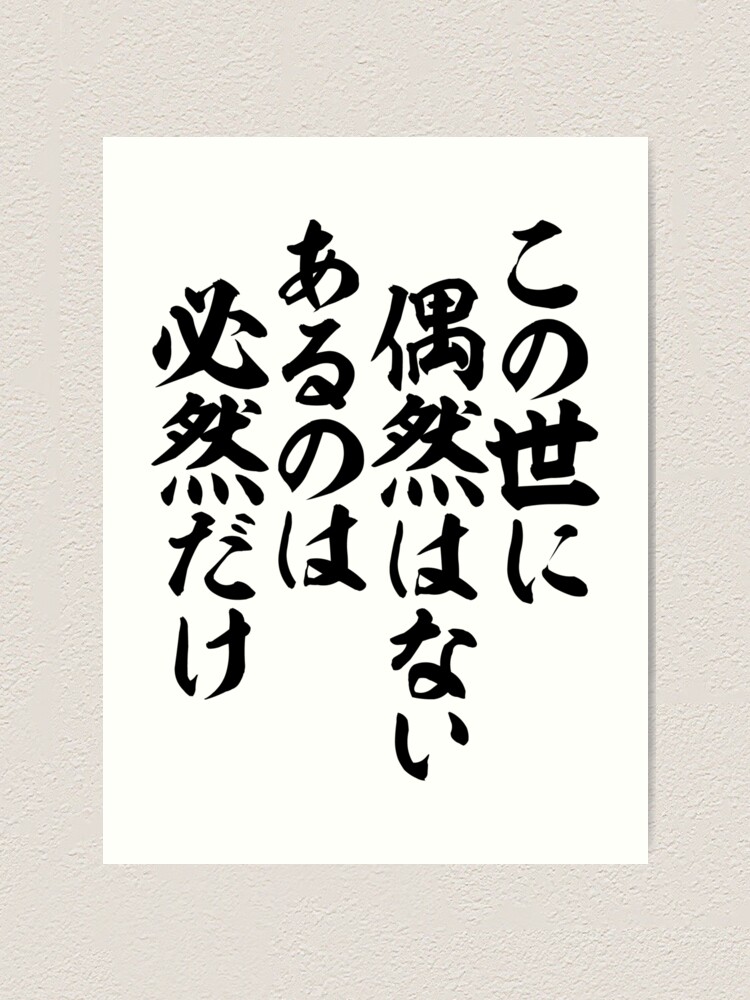 この世に
偶然はない
あるのは
必然だけ